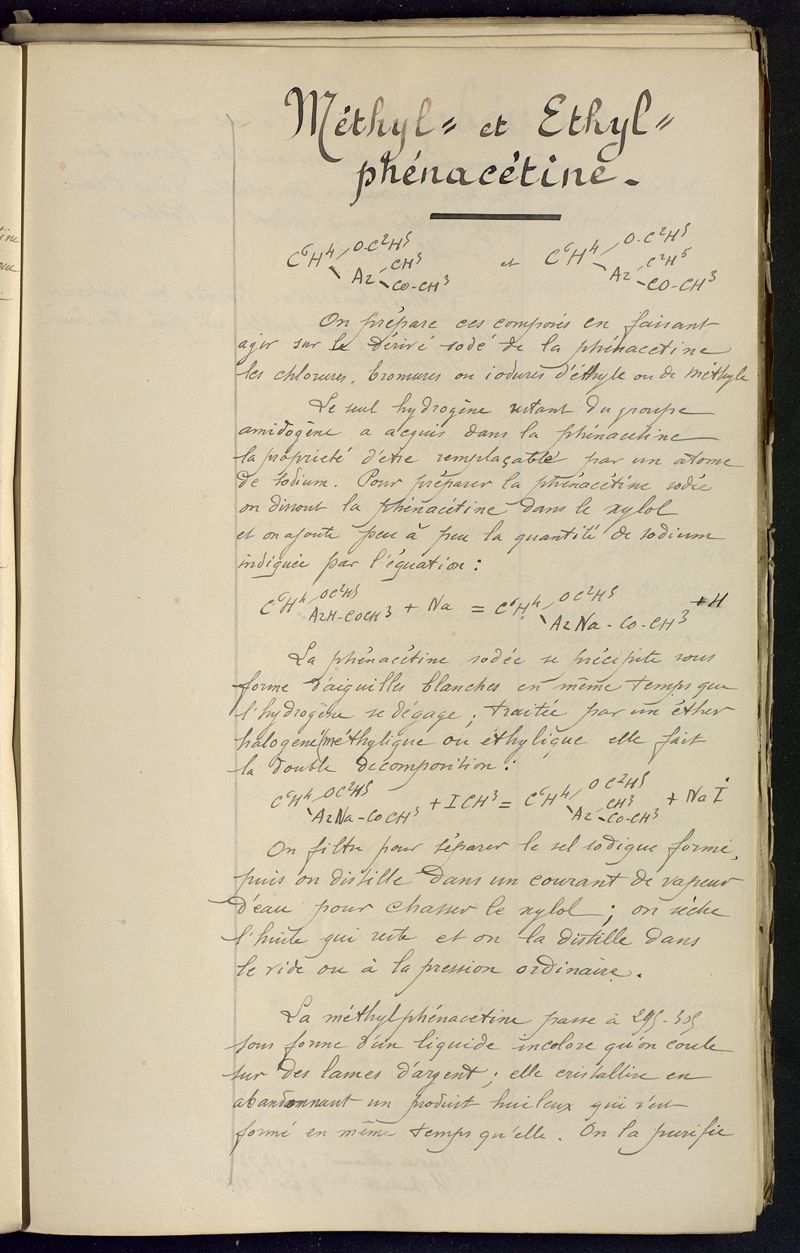 Méthyl= et Ethyl=
phénacétine.
C⁶H⁴ O-C²H⁵ Az CH³ CO-CH³ et C⁶H⁴ O-C²H⁵ Az C²H⁵ CO-CH³
On prépare ces composés en faisant
agir sur le dérivé sodé de la phénacétine
les chlorures, bromures ou iodures d'éthyle ou de méthyle
Le seul hydrogène restant du groupe
amidogène a acquis dans la phénacetine
la propriété d'être remplaçable par un atome
de sodium. Pour préparer la phénacétine sodée
on dissout la phénacétine dans le xylol
et on ajoute peu à peu la quantité de sodium
indiquée par l'équation :
C⁶H⁴ OC²H⁵ AzH-COCH³ + Na = C⁶H⁴ OC²H⁵ AzNa-CO-CH³ + H
La phénacétine sodée se précipite sous
forme d'aiguilles blanches en même temps que
l'hydrogène se dégage ; traitée par un éther
halogéné méthylique ou éthylique elle fait
la double décomposition :
C⁶H⁴ OC²H⁵ AzNa-COCH³ + ICH³ = C⁶H⁴ OC²H⁵ Az CH³ CO-CH³ + NaI
On filtre pour séparer le sel sodique formé,
puis on distille dans un courant de vapeur
d'eau pour chasser le xylol ; on sèche
l'huile qui reste et on la distille dans
le vide ou à la pression ordinaire.
La méthylphénacetine passe à 295-305
sous forme d'un liquide incolore qu'on coule
sur des lames d'argent ; elle cristallise en
abandonnant un produit huileux qui s'est
formé en même temps qu'elle. On la purifie